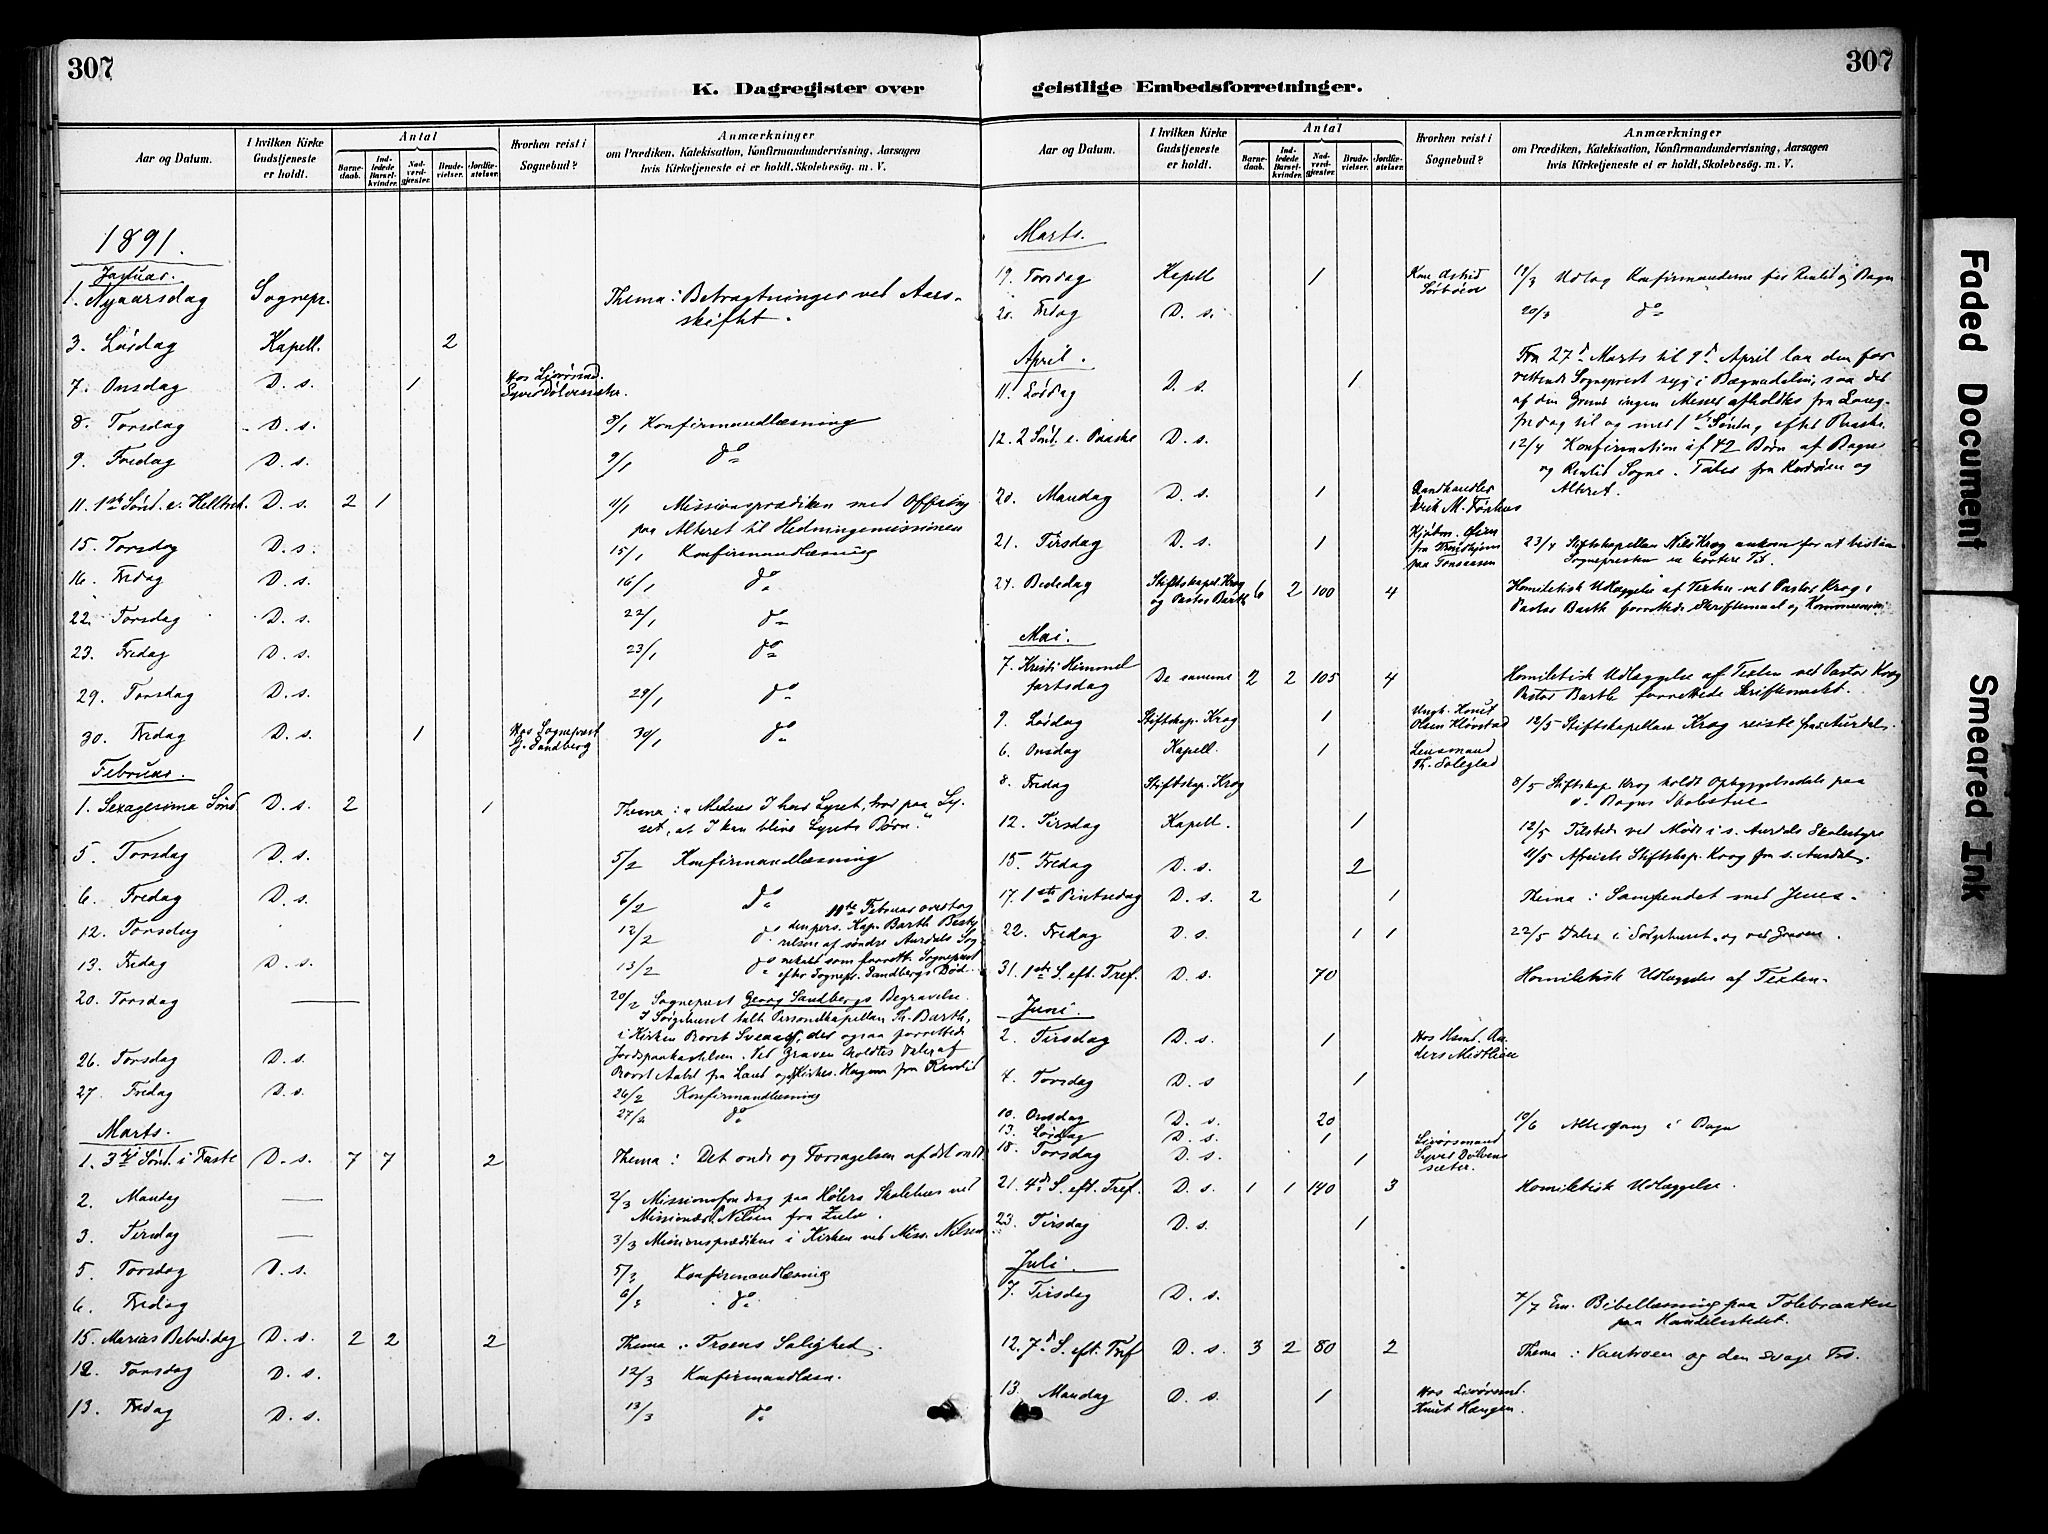 307
K. Dagregister over
Aar og Datum.
I hvilken Kirke Gudstjeneste er holdt.
Antal
Barnedaab.
Indledede Barselkvinder.
Nadverdgjester.
Brudevielser.
Jordfæstelser.
Hvorhen reist i Sognebud?
Anmærkninger
om Prædiken, Katekisation, Konfirmandundervisning, Aarsagen
hvis Kirketjeneste ei er holdt, Skolebesög. m. V.
1891.
Januar.
1. Nyaarsdag Sognepr. Thema: Betragtninger ved Aars-
skiftet.
3. Lørdag Kapell. 2
7. Onsdag D. s. 1 Hos
8. Torsdag D. s. 8/1 Konfirmandlæsning
9. Fredag D. s. 9/1 do
11. 1ste Sønd. e. D. s. 2 1 11/1 Missionsprædiken med Offring
paa Alteret til Hedningemissionen
15. Torsdag D. s. 15/1 Konfirmandlæsning
16. Fredag D. s. 16/1 do
22. Torsdag D. s. 22/1 do
23. Fredag D. s. 23/1 do
29. Torsdag D. s. 29/1 do
30. Fredag D. s. 1 Hos Sogneprest G. Sandberg 30/1 do
Februar.
1. Sexagesima Sønd. D. s. 2 1 Thema: "Medens I have Lyset, tror paa Ly-
set, at I kan blive Lysets Børn."
5. Torsdag D. s. 5/2 Konfirmandlæsning
6. Fredag D. s. 6/2 do
11te Februar overtog
12. Torsdag 12/2 do den pers. Kap. Barth Besty-
relsen af søndre Aurdals Sog-
13. Fredag D. s. 13/2 do nekald som forrett. Sogneprest
efter Sognepr. Sandbergs Død.
20. Torsdag — 20/2 Sogneprest Georg Sandbergs Begravelse.
I Sørgehuset talte Personelkapellan Th. Barth,
i Kirken Provst der ogsaa forrettede
26. Torsdag D. s. Jordspaakastelsen. Ved Graven holdtes Taler af
Provst fra Land og fra
27. Fredag D. s. 26/2 Konfirmandlæsning
27/2 do
Marts.
1. 3die Sønd. i Faste D. s. 7 7 2 Thema: Det onde og Forsagelsen af det onde
2. Mandag — 2/3 Missionsforedrag paa Skolehus ved
Missionær Nilsen fra Zulu.
3. Tirsdag — 3/3 Missionsprædiken i Kirken ved Miss. Nilsen
5. Torsdag D. s. 5/3 Konfirmandlæsning
6. Fredag 6/3 do
15. Marias Bebud.dag D. s. 2 2 2 Thema: Troens Salighed.
12. Torsdag D. s. 12/3 Konfirmandlæsn.
13. Fredag D. s. 13/3 do
307
geistlige Embedsforretninger.
Aar og Datum.
I hvilken Kirke Gudstjeneste er holdt.
Antal
Barnedaab.
Indledede Barselkvinder.
Nadverdgjester.
Brudevielser.
Jordfæstelser.
Hvorhen reist i Sognebud?
Anmærkninger
om Prædiken, Katekisation, Konfirmandundervisning, Aarsagen
hvis Kirketjeneste ei er holdt, Skolebesög. m. V.
Marts.
19. Torsdag Kapell 1 Kone Astrid 19/3 Udtog Konfirmanderne for Reinlid og Bagn
20. Fredag D. s. 20/3 do
April.
Fra 27de Marts til 9de April laa den for-
11. Lørdag D. s. 1 rettende Sogneprest syg i Begnadalen, saa det
af den Grund ingen Messer afholdtes fra Lang-
fredag til og med 1ste Søndag efter Paaske.
12. 2 Sønd. e. Paaske D. s. 12/4 Konfirmation af 42 Børn af Bagns
og Reinlid Sogne. Tales fra Kordøren og
Alteret.
20. Mandag D. s. 1 Landhandler Erik M.
21. Tirsdag D. s. 1 fra Trondhjem paa Tonsaasen 23/4 Stiftskapellan Nils Krog ankom for at bistaa
Sognepresten en kortere Tid.
24. Bededag Stiftskapel. Krog og Pastor Barth 6 2 100 4 Homiletisk Udlæggelse af Texten ved Pastor Krog;
Pastor Barth forrettede Skriftemaal og Kommunion
Mai.
7. Kristi Himmelfartsdag De samme 2 2 105 4 Homiletisk Udlæggelse af Texten ved Pastor Krog
Pastor Barth forrettede Skriftemaalet.
9. Lørdag Stiftskap. Krog 1 Ungk. Knut Olsen 12/5 Stiftskapellan Krog reiste fra s. Aurdal.
6. Onsdag Kapell. 1 Lensmand Th. Soleglad
8. Fredag Stiftskap. Krog 8/5 Stiftskap. Krog holdt Opbyggelsestale paa
Bagns Skolestue
12. Tirsdag Kapell. 1 12/5 Tilstede ved Møde i s. Aurdals Skolestyre
15. Fredag D. s. 2 Afreiste Stiftskap. Krog fra s. Aurdal.
17. 1ste Pintsedag D. s. 2 1 Thema: Samfundet med Jesus.
22. Fredag D. s. 1 1 22/5 Tale i Sørgehuset og ved Graven.
31. 1ste S. eft. Tref. D. s. 70 Homiletisk Udlæggelse af Texten.
Juni.
2. Tirsdag D. s. 1 Hos Anders Midtlien
4. Torsdag D. s 1
10. Onsdag D. s. 20 10/6 Altergang i Bagn
13. Lørdag D. s. 1
18. Torsdag D. s. 1
21. 4de S. eft. Tref. D. s. 1 1 140 3 Homiletisk Udlæggelse.
23. Tirsdag D. s. 1
Juli.
7. Tirsdag D. s. 7/7 Em. Bibellæsning paa
paa Handelsstedet.
12. 7de S. eft. Tref D. s. 3 2 80 2 Thema: Vantroen og den svage Tro.
13. Mandag D. s. 1 Hos Knut Haugen.
Faded Document
Smeared Ink